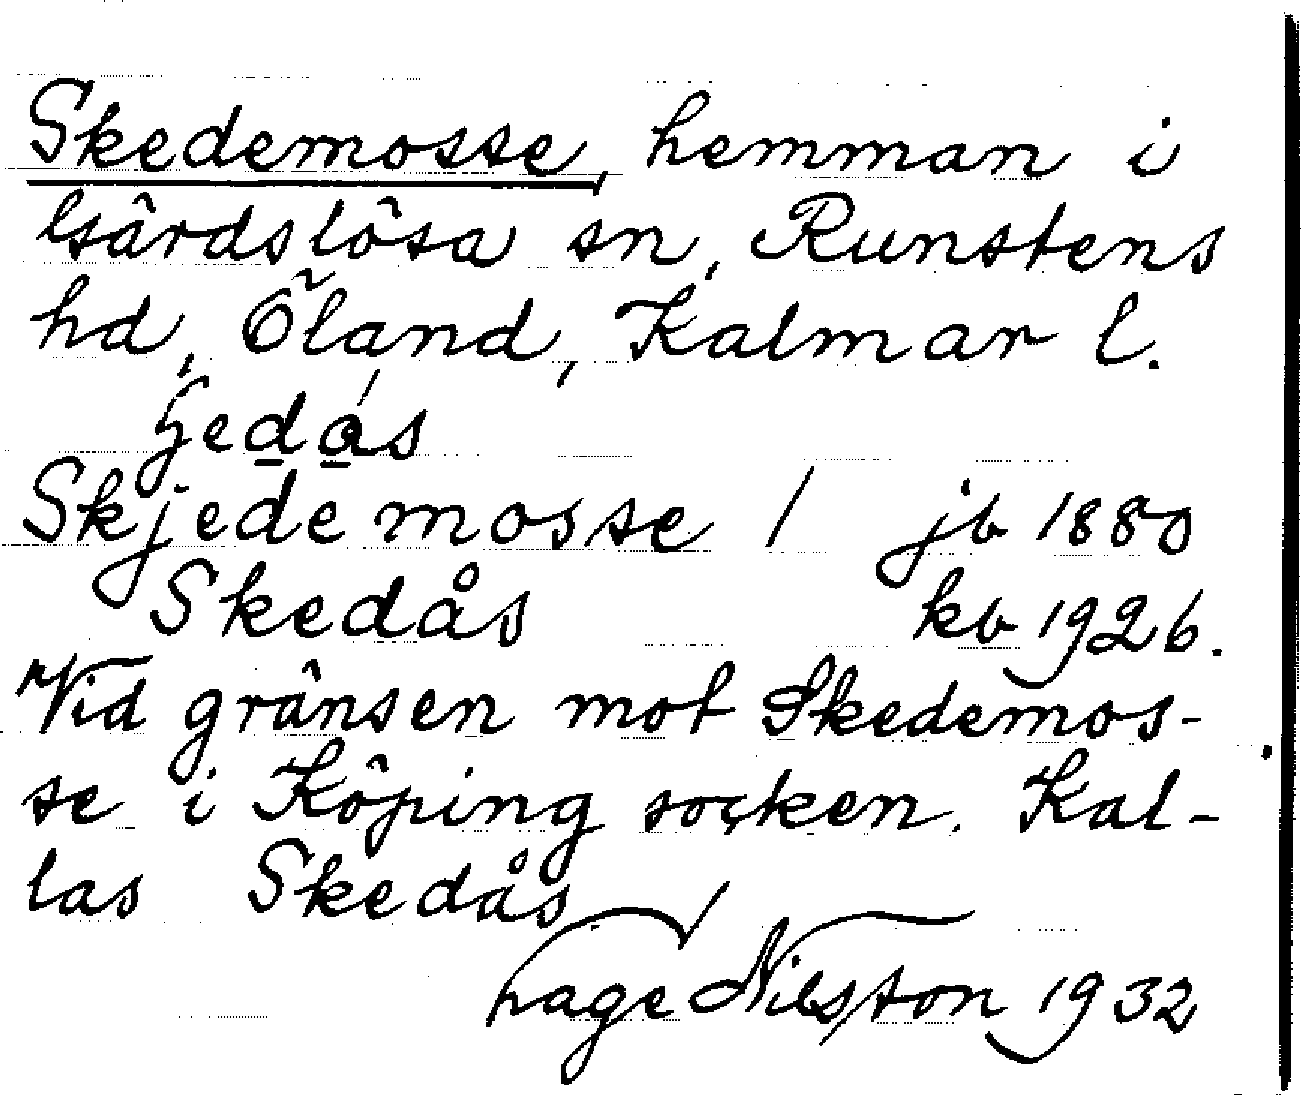 Skedemosse, hemman i
Gärdslösa sn, Runstens
hd, Öland, Kalmar l.
Skjedemosse / jb 1880
Skedås kb 1926.
Vid gränsen mot Skedemos-
se i Köping socken. Kal-
las Skedås.
Hage Nilsson 1932